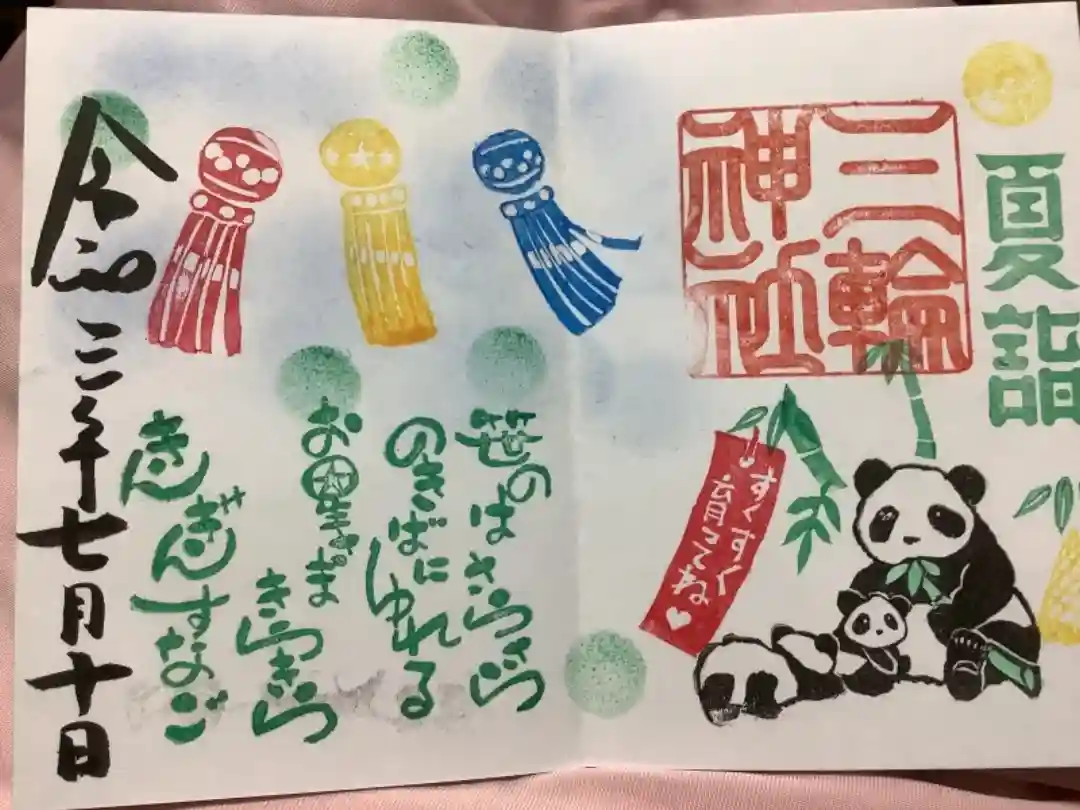 夏詣
三輪
神社
すくすく
育ってね♥
笹のはさらさら
のきばにゆれる
お星さま
きらきら
きんぎんすなご
令和三年七月十日